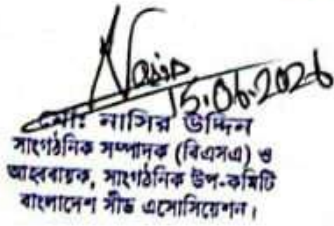 Nasir
15.06.2026
মোঃ নাসির উদ্দিন
সাংগঠনিক সম্পাদক (বিএসএ) ও
আহবায়ক, সাংগঠনিক উপ-কমিটি
বাংলাদেশ সীড এসোসিয়েশন।